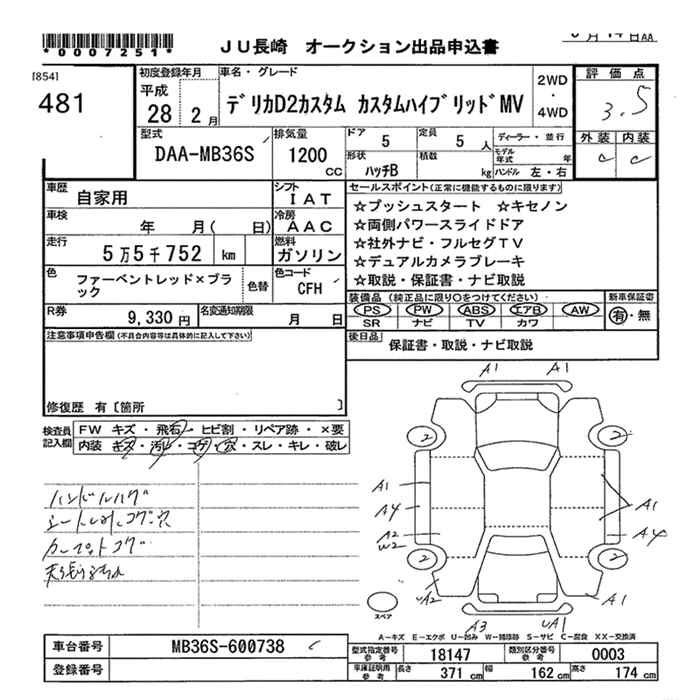 *0007251*
JU長崎 オークション出品申込書
[854]
481
初度登録年月
平成
28 2 月
車名・グレード
デリカD2カスタム カスタムハイブリッドMV
2WD
・
4WD
評価点
3.5
外装 内装
C C
型式
DAA-MB36S
排気量
1200
CC
ドア
5
定員
5 人
形状
ハッチB
積数
kg
ディーラー・並行
モデル年式 年
ハンドル 左・右
車歴
自家用
シフト
IAT
車検
年 月( 日)
冷房
AAC
走行
5万5千752 km
燃料
ガソリン
色
ファーベントレッド×ブラック
色替
色コード
CFH
R券
9,330 円
名変通知期限
月 日
セールスポイント(正常に機能するものに限ります)
☆プッシュスタート ☆キセノン
☆両側パワースライドドア
☆社外ナビ・フルセグTV
☆デュアルカメラブレーキ
☆取説・保証書・ナビ取説
装備品(純正品に限り○をつけてください)
PS PW ABS エアB AW
SR ナビ TV カワ
新車保証書
有・無
後日品
保証書・取説・ナビ取説
注意事項申告欄(不具合内容等は具体的に記入して下さい)
修復歴 有〔箇所 〕
検査員記入欄
FW キズ・飛石・ヒビ割・リペア跡・×要
内装 キズ・汚れ・コゲ・穴・スレ・キレ・破レ
ハンドルハゲ
シートしみ、コゲ穴
カーペットコゲ
A1 A1
2 2
A1
A4
A2
W2
A1
A4
2 2
UA2
A1
A3
UA1
スペア
A-キズ E-エクボ U-凹み W-補修跡 S-サビ C-腐食 XX-交換済
車台番号
MB36S-600738
登録番号
型式指定番号
参考
18147
類別区分番号
参考
0003
車庫証明用
参考
長さ 371 cm
幅 162 cm
高さ 174 cm